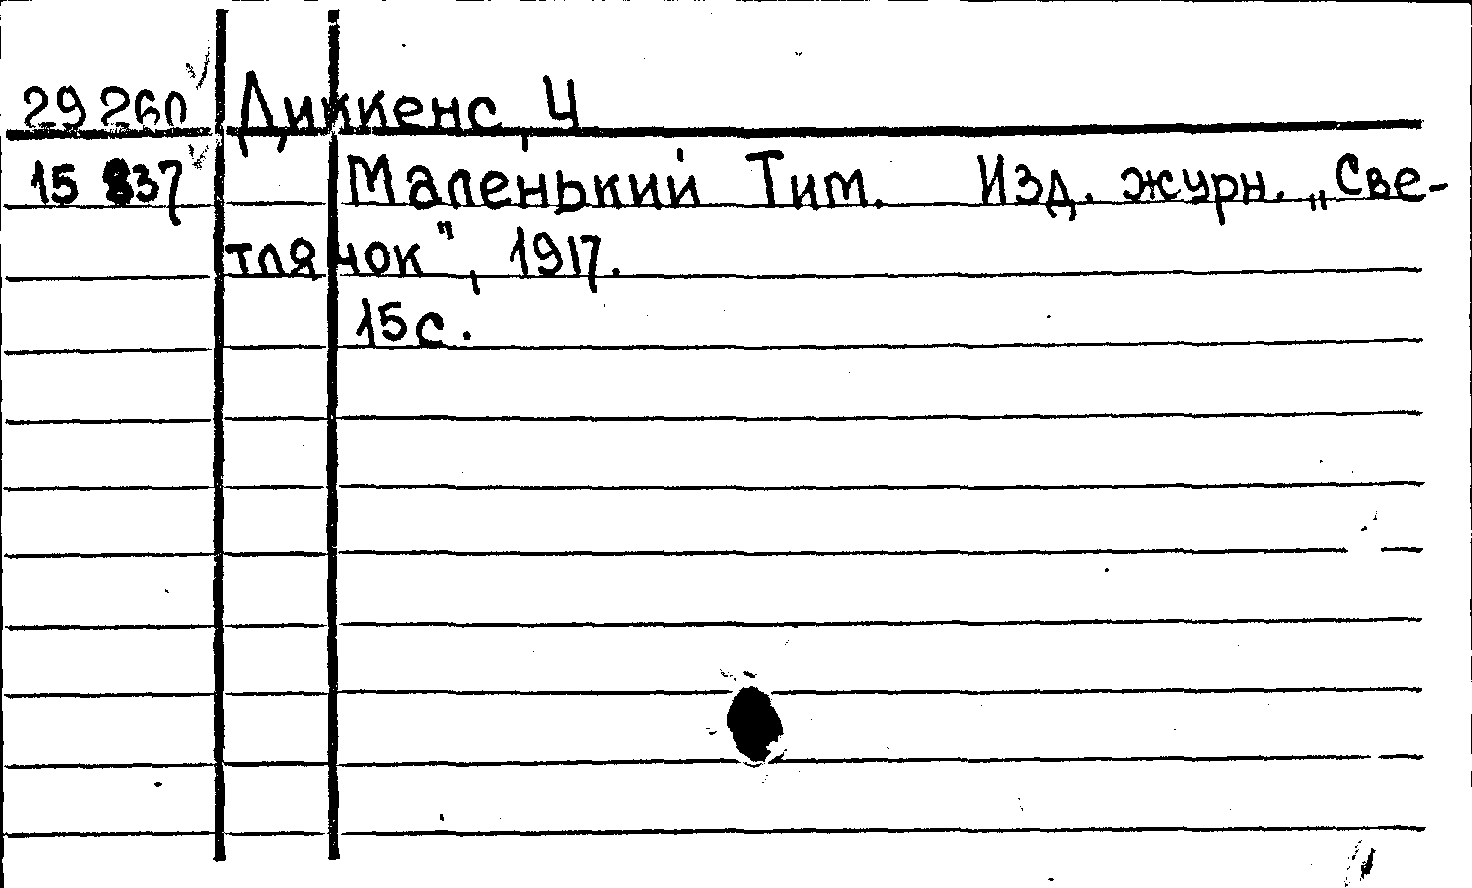 29260 Диккенс, Ч
15 837 Маленький Тим. Изд. журн. „Све-
тлячок", 1917.
15с.